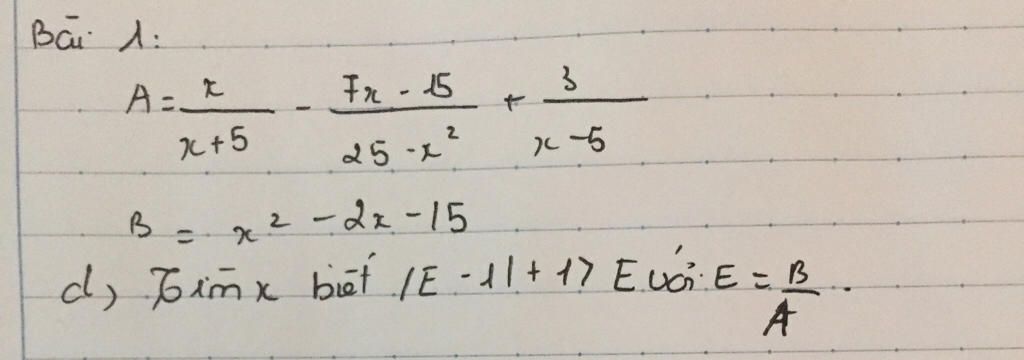 Bài 1:
A = x/(x+5) - (7x - 15)/(25 - x²) + 3/(x - 5)
B = x² - 2x - 15
d) Tìm x biết |E - 1| + 1 > E với E = B/A.